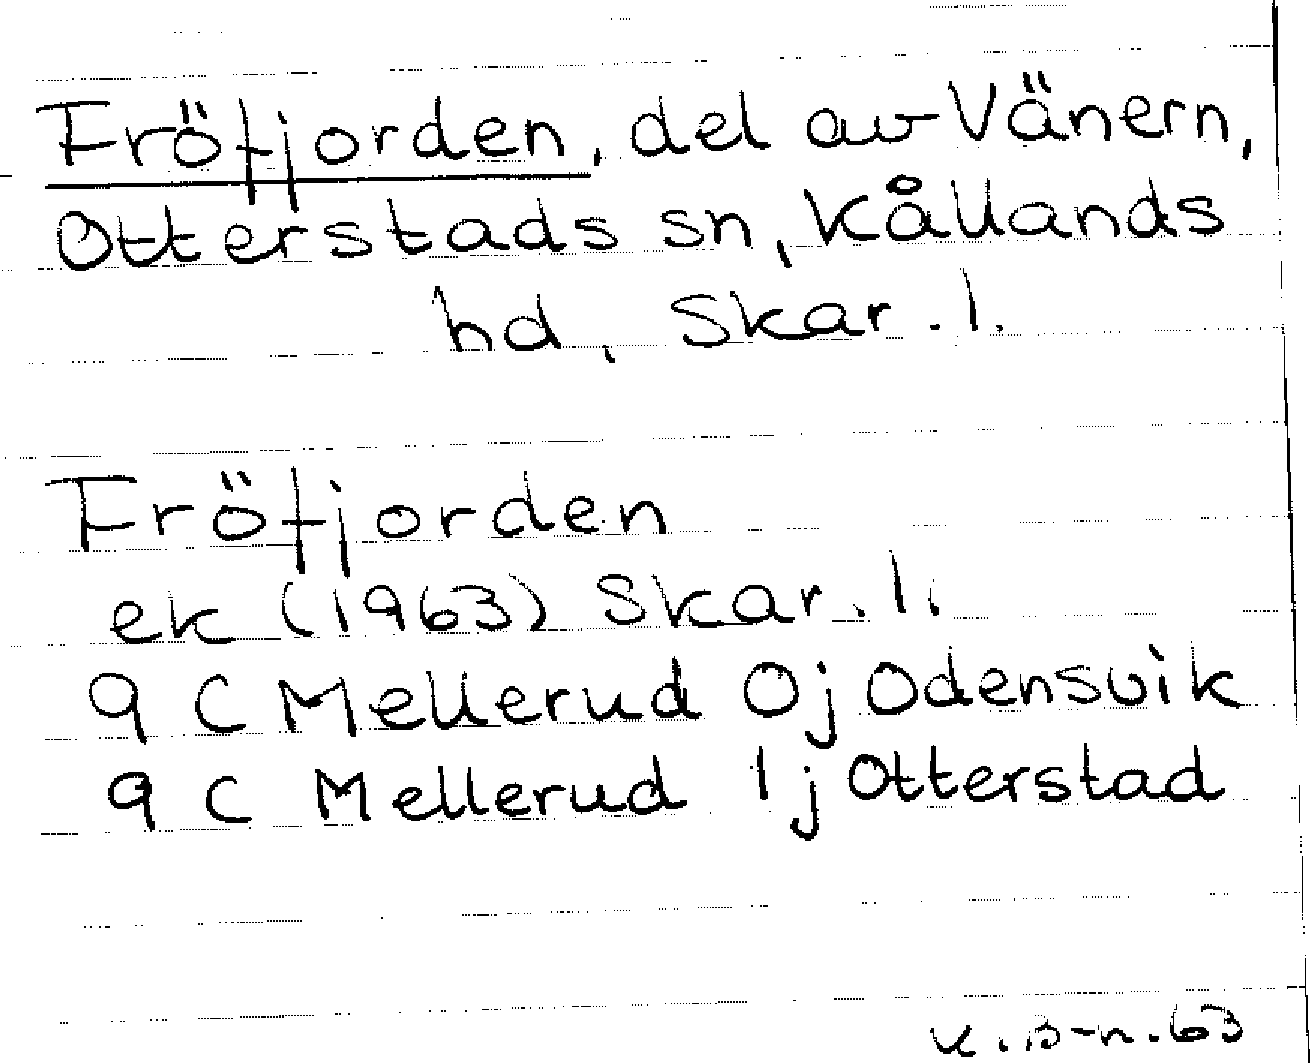 Fröfjorden, del av Vänern,
Otterstads sn, Kållands
hd, Skar. l.
Fröfjorden
ek (1963) Skar. l.
9 C Mellerud 0j Odensvik
9 C Mellerud 1j Otterstad
K.B-n.63